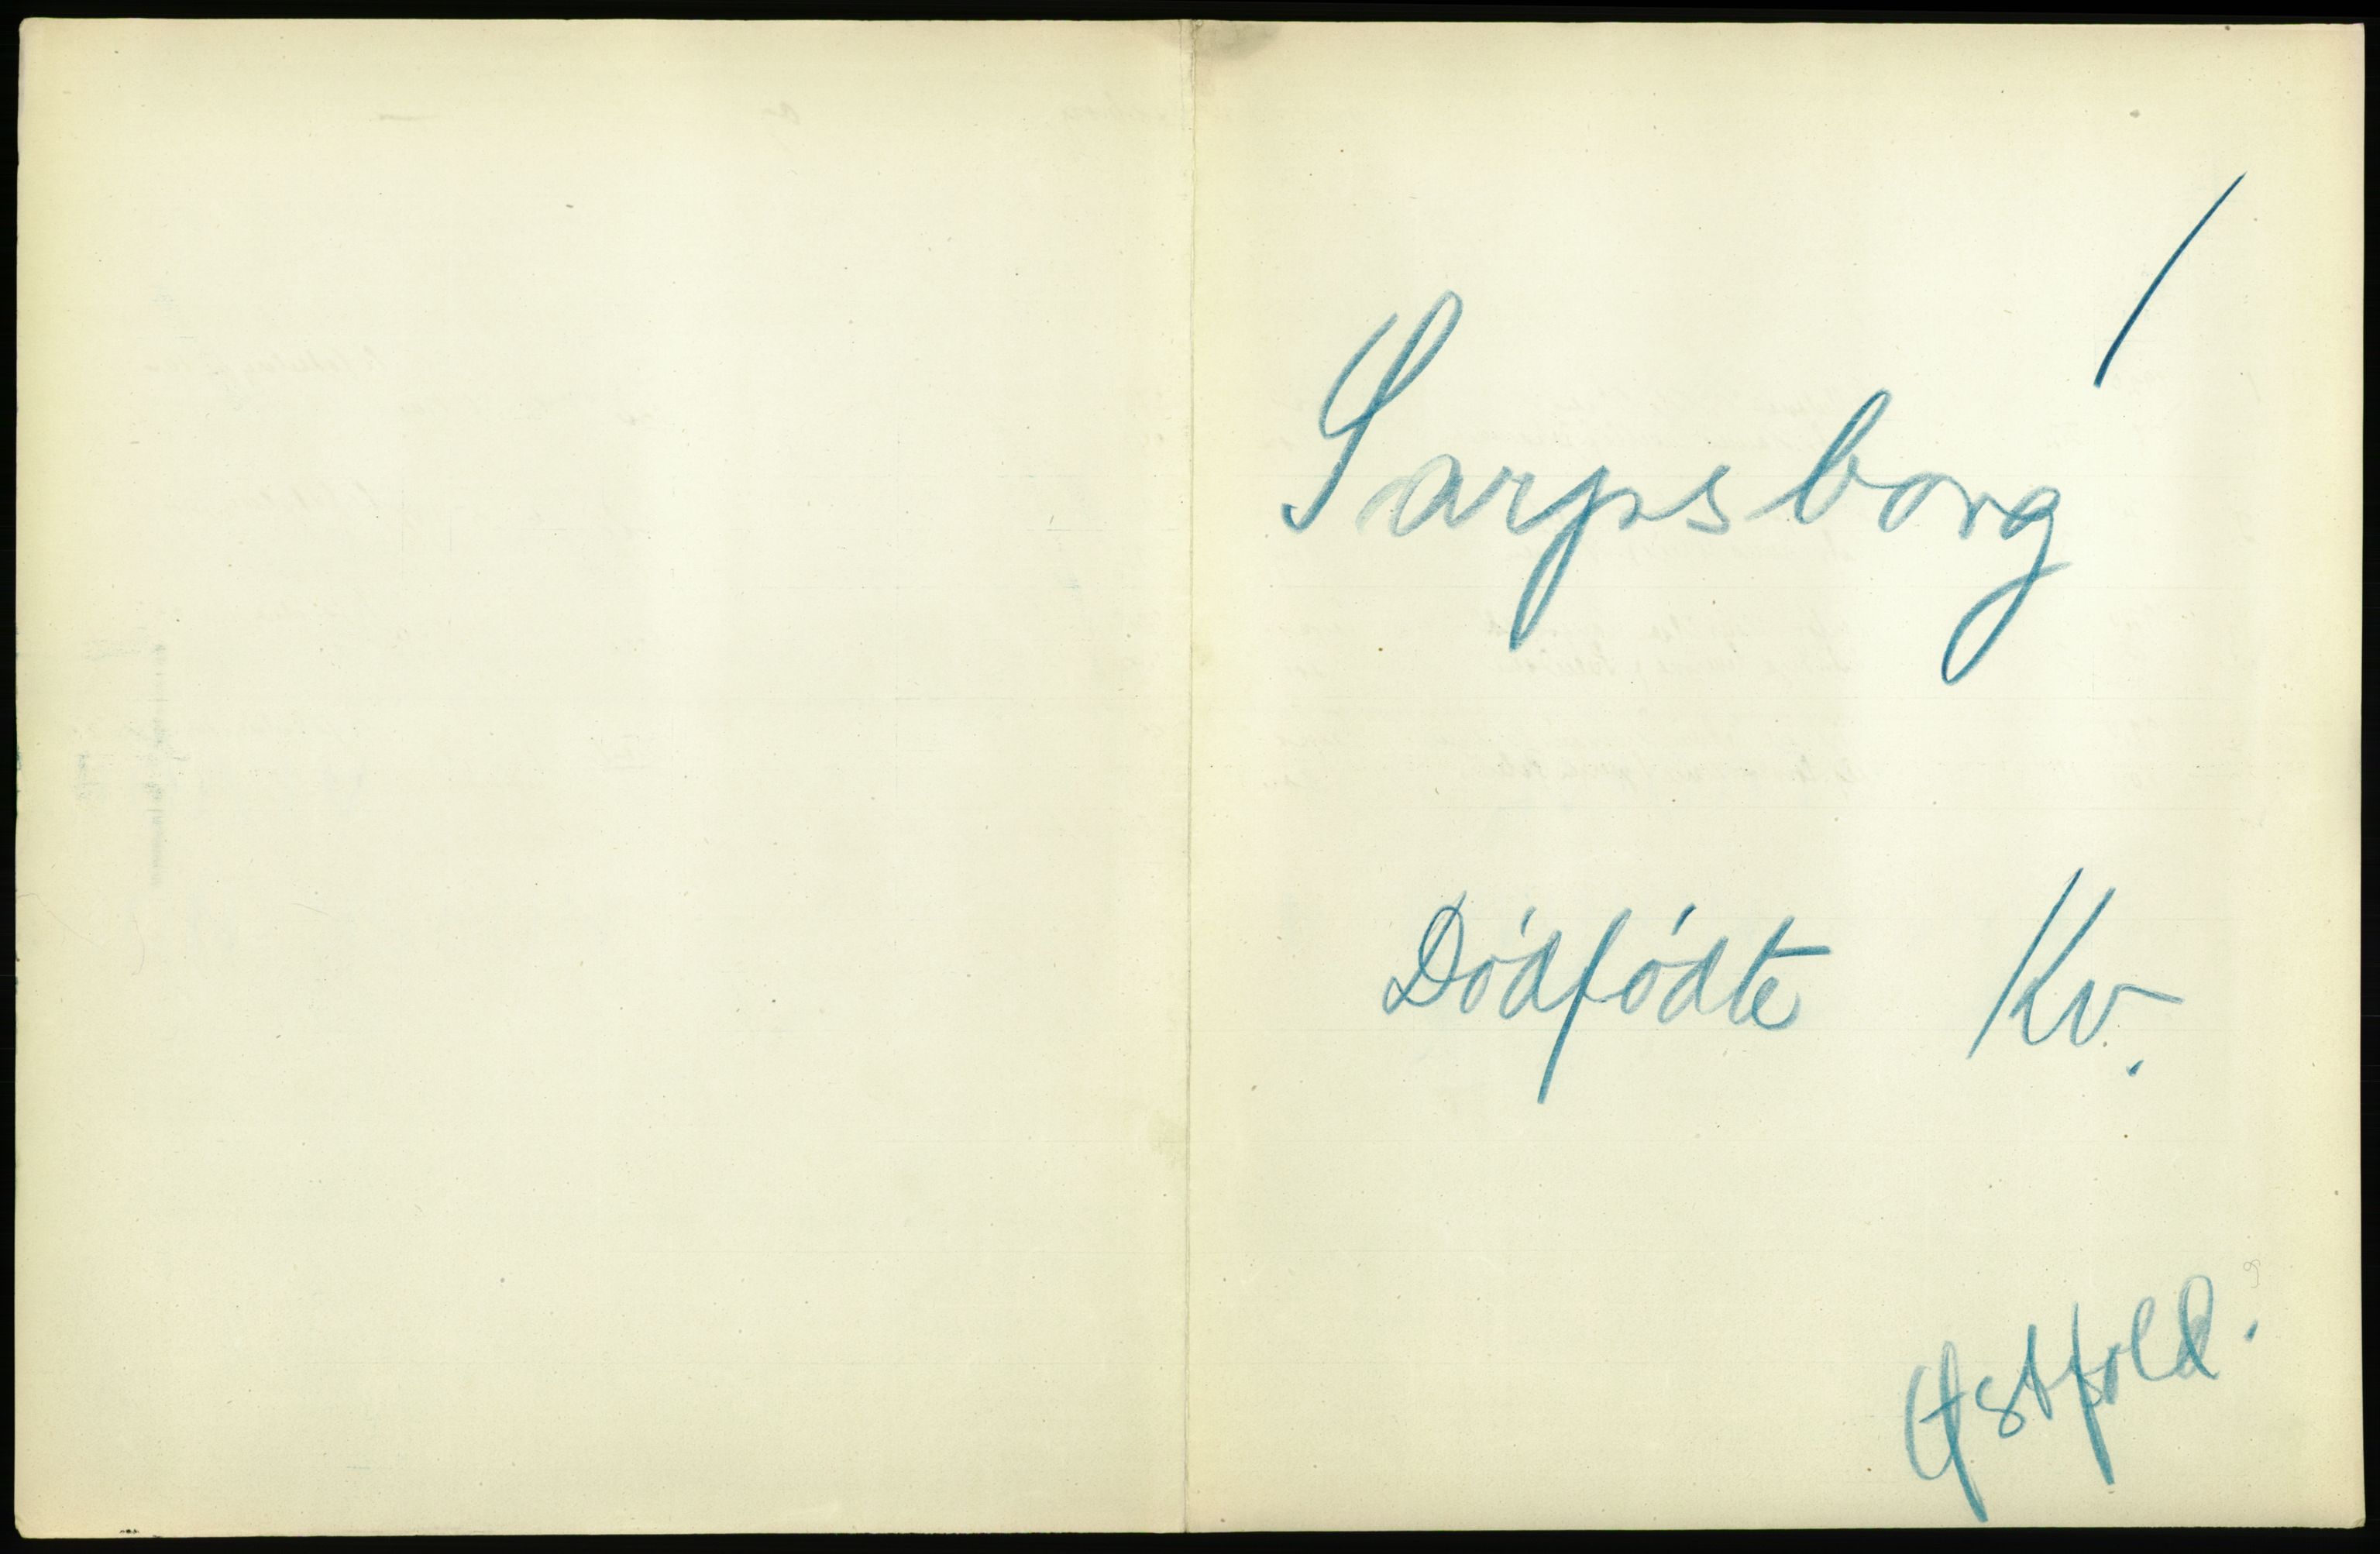 /
Sarpsborg
Dódfódte Kv.
Østfold.